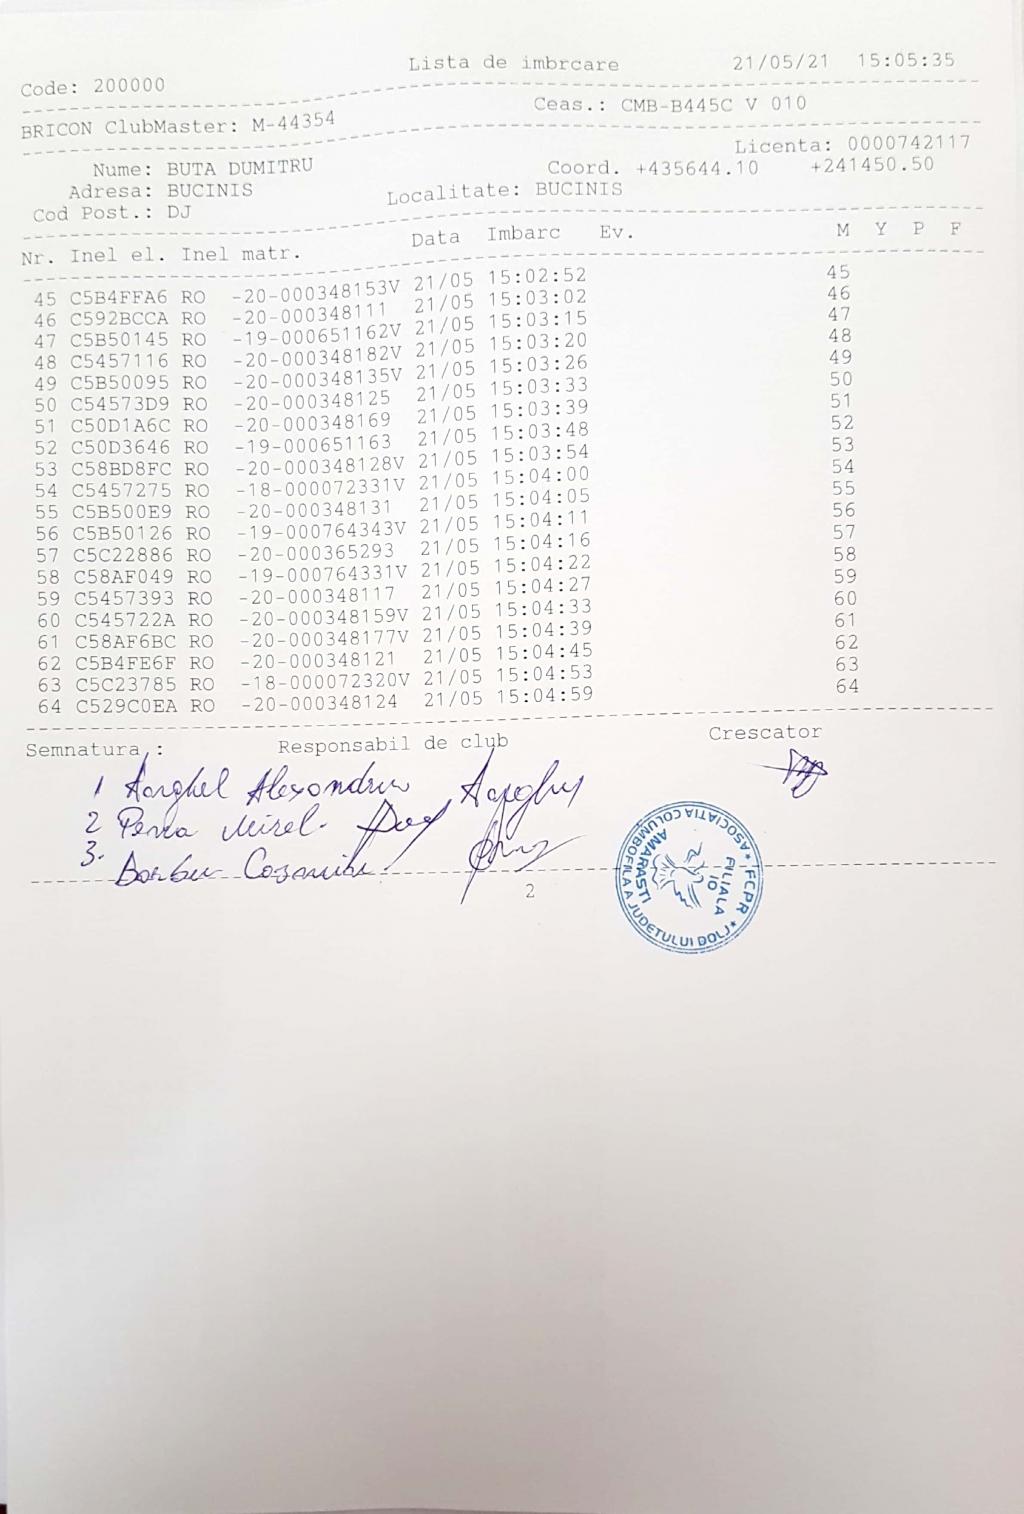 Lista de imbrcare 21/05/21 15:05:35
Code: 200000
BRICON ClubMaster: M-44354 Ceas.: CMB-B445C V 010
Licenta: 0000742117
Nume: BUTA DUMITRU Coord. +435644.10 +241450.50
Adresa: BUCINIS Localitate: BUCINIS
Cod Post.: DJ
Nr. Inel el. Inel matr. Data Imbarc Ev. M Y P F
45 C5B4FFA6 RO -20-000348153V 21/05 15:02:52 45
46 C592BCCA RO -20-000348111 21/05 15:03:02 46
47 C5B50145 RO -19-000651162V 21/05 15:03:15 47
48 C5457116 RO -20-000348182V 21/05 15:03:20 48
49 C5B50095 RO -20-000348135V 21/05 15:03:26 49
50 C54573D9 RO -20-000348125 21/05 15:03:33 50
51 C50D1A6C RO -20-000348169 21/05 15:03:39 51
52 C50D3646 RO -19-000651163 21/05 15:03:48 52
53 C58BD8FC RO -20-000348128V 21/05 15:03:54 53
54 C5457275 RO -18-000072331V 21/05 15:04:00 54
55 C5B500E9 RO -20-000348131 21/05 15:04:05 55
56 C5B50126 RO -19-000764343V 21/05 15:04:11 56
57 C5C22886 RO -20-000365293 21/05 15:04:16 57
58 C58AF049 RO -19-000764331V 21/05 15:04:22 58
59 C5457393 RO -20-000348117 21/05 15:04:27 59
60 C545722A RO -20-000348159V 21/05 15:04:33 60
61 C58AF6BC RO -20-000348177V 21/05 15:04:39 61
62 C5B4FE6F RO -20-000348121 21/05 15:04:45 62
63 C5C23785 RO -18-000072320V 21/05 15:04:53 63
64 C529C0EA RO -20-000348124 21/05 15:04:59 64
Semnatura : Responsabil de club Crescator
1 Alexandru
2 Mirel
3. Barbu
2
ASOCIATIA COLUMBOFILA A JUDETULUI DOLJ * FCPR *
FILIALA
10
AMARASTI